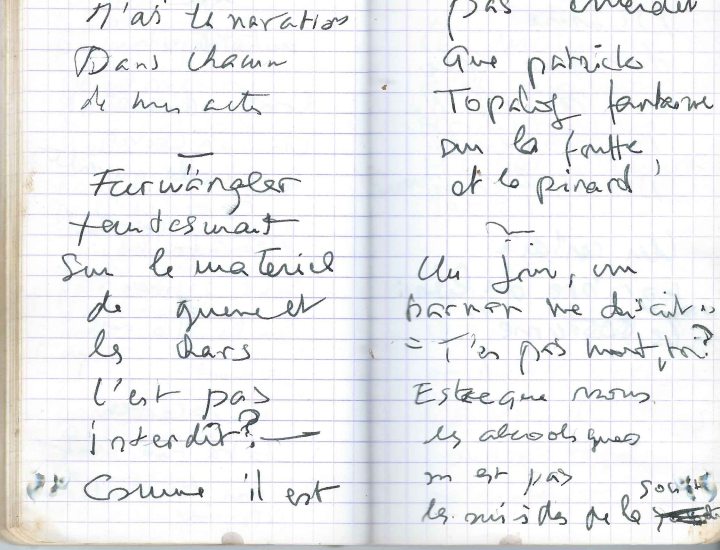 Dans chacun
de mes actes
Furwängler
fantasmant
Sur le materiel
de guerre et
les chars
l'est pas
interdit?
Comme il est
pas
Que patrick
Topaloff fantasme
sur la foutte
et le pinard
Un jour, un
me disait
= T'es pas mort, toi?
Est ce que nous
les alcooliques
on est pas
les suicidés de la société